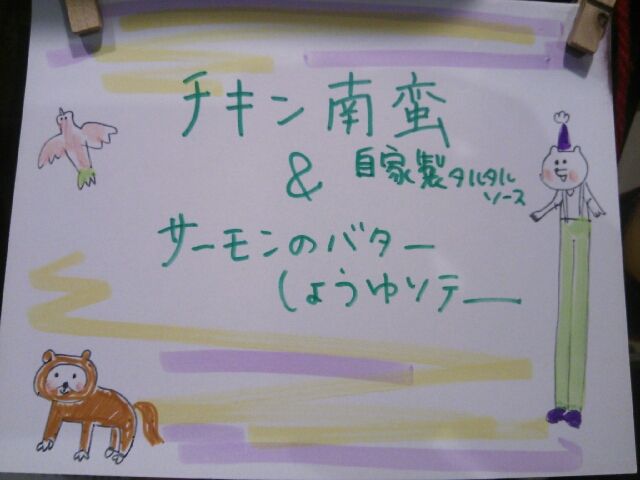 チキン南蛮
& 自家製タルタル
ソース
サーモンのバター
しょうゆソテー